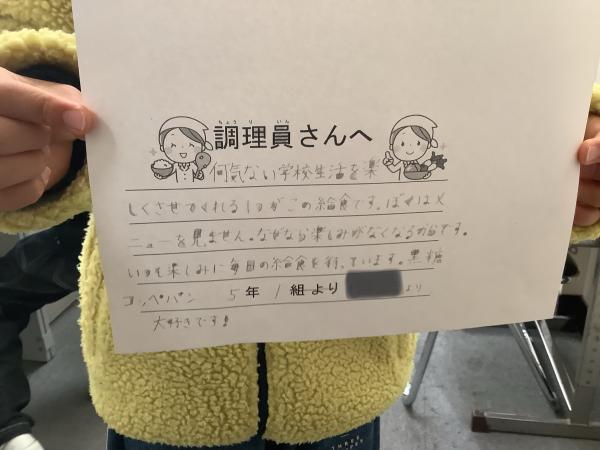 ちょうりいん
調理員さんへ
何気ない学校生活を楽
しくさせてくれる1つがこの給食です。ぼくはメ
ニューを見ません。なぜなら楽しみがなくなるからです。
いつも楽しみに毎日の給食を待っています。黒糖
コッペパン 5年 1組より より
大好きです!
THREE